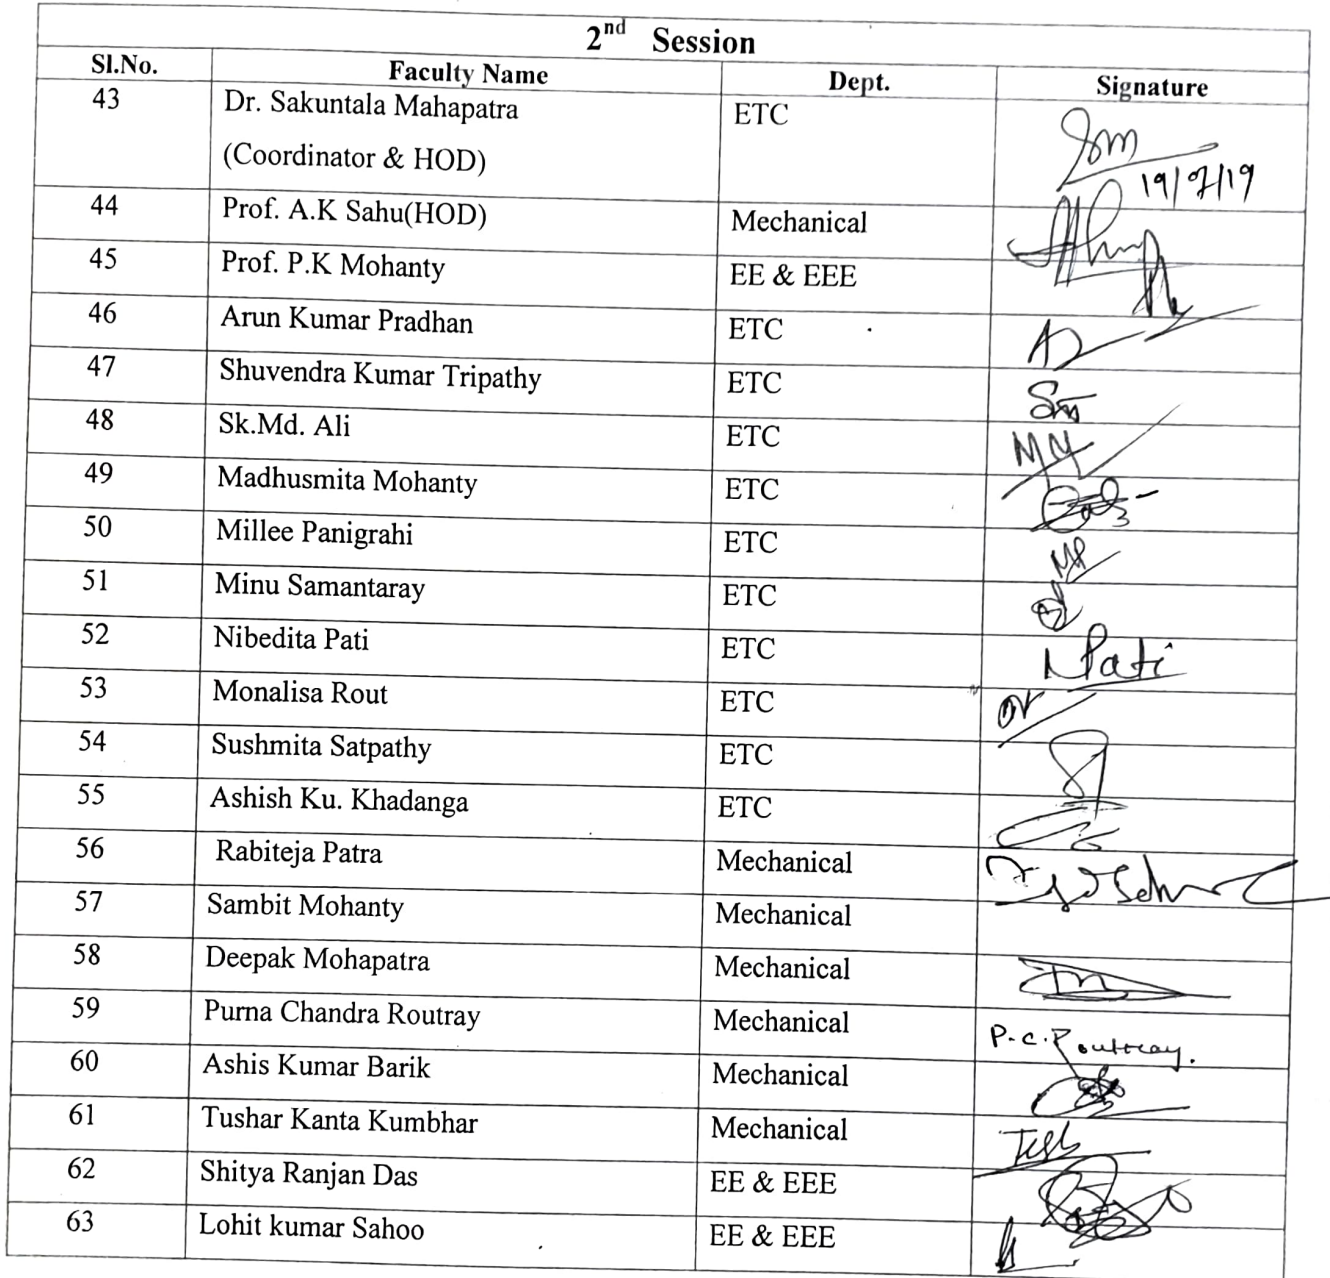 2nd Session
Sl.No. Faculty Name Dept. Signature
43 Dr. Sakuntala Mahapatra ETC
(Coordinator & HOD)
19/7/19
44 Prof. A.K Sahu(HOD) Mechanical
45 Prof. P.K Mohanty EE & EEE
46 Arun Kumar Pradhan ETC
47 Shuvendra Kumar Tripathy ETC
48 Sk.Md. Ali ETC
49 Madhusmita Mohanty ETC
50 Millee Panigrahi ETC
51 Minu Samantaray ETC
52 Nibedita Pati ETC NPati
53 Monalisa Rout ETC
54 Sushmita Satpathy ETC
55 Ashish Ku. Khadanga ETC
56 Rabiteja Patra Mechanical
57 Sambit Mohanty Mechanical
58 Deepak Mohapatra Mechanical
59 Purna Chandra Routray Mechanical P.C.Routray.
60 Ashis Kumar Barik Mechanical
61 Tushar Kanta Kumbhar Mechanical
62 Shitya Ranjan Das EE & EEE
63 Lohit kumar Sahoo EE & EEE